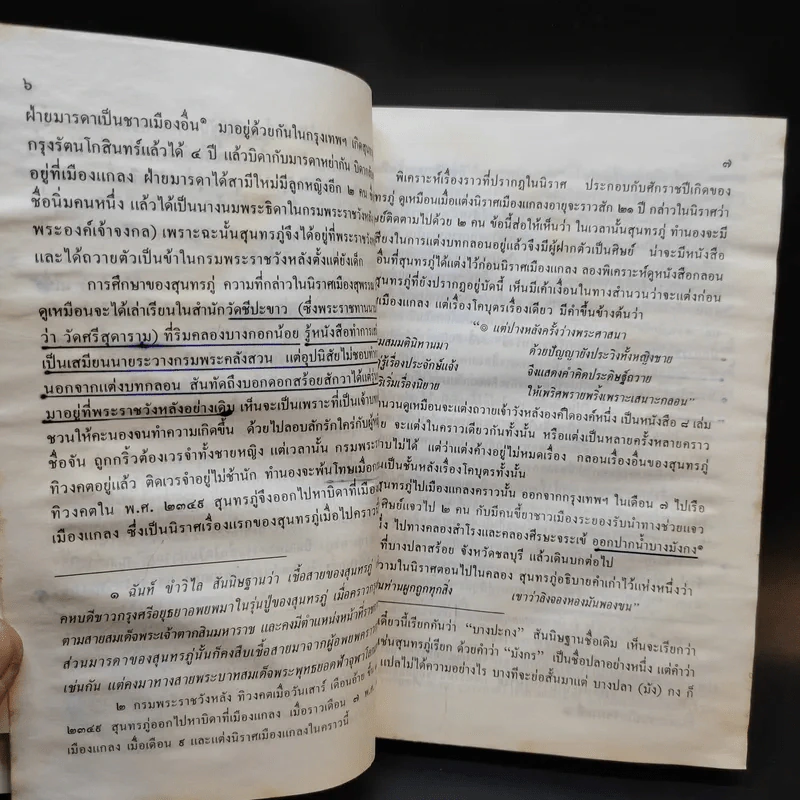 ๖
ฝ่ายมารดาเป็นชาวเมืองอื่น๑ มาอยู่ด้วยกันในกรุงเทพฯ เกิดสุนทร
กรุงรัตนโกสินทร์แล้วได้ ๔ ปี แล้วบิดากับมารดาหย่ากัน บิดา
อยู่ที่เมืองแกลง ฝ่ายมารดาได้สามีใหม่มีลูกหญิงอีก ๒ คน
ชื่อนิ่มคนหนึ่ง แล้วได้เป็นนางนมพระธิดาในกรมพระราชวังหลัง
พระองค์เจ้าจงกล) เพราะฉะนั้นสุนทรภู่จึงได้อยู่ที่พระราชวัง
และได้ถวายตัวเป็นข้าในกรมพระราชวังหลังตั้งแต่ยังเด็ก
การศึกษาของสุนทรภู่ ความที่กล่าวในนิราศเมืองสุพรรณ
ดูเหมือนจะได้เล่าเรียนในสำนักวัดชีปะขาว (ซึ่งพระราชทานนาม
ว่า วัดศรีสุดาราม) ที่ริมคลองบางกอกน้อย รู้หนังสือทำการ
เป็นเสมียนนายระวางกรมพระคลังสวน แต่อุปนิสัยไม่ชอบ
นอกจากแต่งบทกลอน สันทัดถึงบอกดอกสร้อยสักวาได้แต่
มาอยู่ที่พระราชวังหลังอย่างเดิม เห็นจะเป็นเพราะที่เป็นเจ้า
ชวนให้คะนองจนทำความเกิดขึ้น ด้วยไปลอบสักรักใคร่กับผู้หญิง
ชื่อจัน ถูกกริ้วต้องเวรจำทั้งชายหญิง แต่เวลานั้น กรมพระ
ทิวงคตอยู่แล้ว ติดเวรจำอยู่ไม่ช้านัก ทำนองจะพ้นโทษเมื่อ
ทิวงคตใน พ.ศ. ๒๓๔๙ สุนทรภู่จึงออกไปหาบิดาที่เมือง
เมืองแกลง ซึ่งเป็นนิราศเรื่องแรกของสุนทรภู่เมื่อไปคราว
๑ ฉันท์ ขำวิไล สันนิษฐานว่า เชื้อสายของสุนทรภู่
คหบดีชาวกรุงศรีอยุธยาอพยพมาในรุ่นปู่ของสุนทรภู่ เมื่อคราวกรุง
ตามสายสมเด็จพระเจ้าตากสินมหาราช และคงมีตำแหน่งหน้าที่ราช
ส่วนมารดาของสุนทรภู่นั้นก็คงสืบเชื้อสายมาจากผู้อพยพคราว
เช่นกัน แต่คงมาทางสายพระบาทสมเด็จพระพุทธยอดฟ้าจุฬาโลก
๒ กรมพระราชวังหลัง ทิวงคตเมื่อวันเสาร์ เดือนอ้าย
๒๓๔๙ สุนทรภู่ออกไปหาบิดาที่เมืองแกลง เมื่อราวเดือน ๗ พ.ศ.
เมืองแกลง เมื่อเดือน ๙ และแต่งนิราศเมืองแกลงในคราวนี้
๗
พิเคราะห์เรื่องราวที่ปรากฏในนิราศ ประกอบกับศักราชปีเกิดของ
ทรภู่ ดูเหมือนเมื่อแต่งนิราศเมืองแกลงอายุจะราวสัก ๒๑ ปี กล่าวในนิราศว่า
ย์ติดตามไปด้วย ๒ คน ข้อนี้ส่อให้เห็นว่า ในเวลานั้นสุนทรภู่ ทำนองจะมี
สียงในการแต่งบทกลอนอยู่แล้วจึงมีผู้ฝากตัวเป็นศิษย์ น่าจะมีหนังสือ
อื่นที่สุนทรภู่ได้แต่งไว้ก่อนนิราศเมืองแกลง ลองพิเคราะห์ดูหนังสือกลอน
สุนทรภู่ที่ยังปรากฏอยู่บัดนี้ เห็นมีเค้าเงื่อนในทางสำนวนว่าจะแต่งก่อน
เมืองแกลง แต่เรื่องโคบุตรเรื่องเดียว มีคำขึ้นข้างต้นว่า
“๏ แต่ปางหลังครั้งว่างพระศาสนา
มสมมตินิทานมา ด้วยปัญญายังประวิงทั้งหญิงชาย
รู้เรื่องประจักษ์แจ้ง จึงแสดงคำคิดประดิษฐ์ถวาย
ริเริ่มเรื่องนิยาย ให้เพริศพรายพริ้งเพราะเสนาะกลอน”
นวนดูเหมือนจะแต่งถวายเจ้าวังหลังองค์ใดองค์หนึ่ง เป็นหนังสือ ๘ เล่ม
ย จะแต่งในคราวเดียวกันทั้งนั้น หรือแต่งเป็นหลายครั้งหลายคราว
าบไม่ได้ แต่ว่าแต่งค้างอยู่ไม่หมดเรื่อง กลอนเรื่องอื่นของสุนทรภู่
เป็นชั้นหลังเรื่องโคบุตรทั้งนั้น
สุนทรภู่ไปเมืองแกลงคราวนั้น ออกจากกรุงเทพฯ ในเดือน ๗ ไปเรือ
ศิษย์แจวไป ๒ คน กับมีคนขี้ยาชาวเมืองระยองรับนำทางช่วยแจว
ง ไปทางคลองสำโรงและคลองศีรษะจระเข้ ออกปากน้ำบางมังกง๑
ที่บางปลาสร้อย จังหวัดชลบุรี แล้วเดินบกต่อไป
ความในนิราศตอนไปในคลอง สุนทรภู่อธิบายคำเก่าไว้แห่งหนึ่งว่า
นท่านผูกถูกทุกสิ่ง เขาว่าลิงจองหองมันพองขน”
เดี๋ยวนี้เรียกกันว่า “บางปะกง” สันนิษฐานชื่อเดิม เห็นจะเรียกว่า
เช่นสุนทรภู่เรียก ด้วยคำว่า “มังกร” เป็นชื่อปลาอย่างหนึ่ง แต่คำว่า
แปลไม่ได้ความอย่างไร บางทีจะย่อสั้นมาแต่ บางปลา (มัง) กง ก็